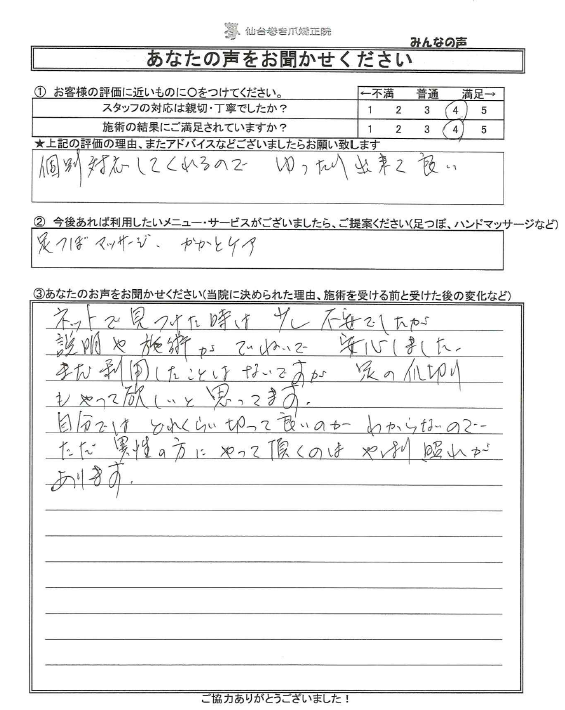 仙台巻き爪矯正院
みんなの声
あなたの声をお聞かせください
① お客様の評価に近いものに〇をつけてください。 ←不満 普通 満足→
スタッフの対応は親切・丁寧でしたか? 1 2 3 4 5
施術の結果にご満足されていますか? 1 2 3 4 5
★上記の評価の理由、またアドバイスなどございましたらお願い致します
個別対応してくれるので ゆったり出来て良い
② 今後あれば利用したいメニュー・サービスがございましたら、ご提案ください(足つぼ、ハンドマッサージなど)
足つぼマッサージ、かかとケア
③あなたのお声をお聞かせください(当院に決められた理由、施術を受ける前と受けた後の変化など)
ネットで見つけた時は少し不安でしたが
説明や施術がていねいで 安心しました。
まだ利用したことはないですが 足の爪切り
もやって欲しいと思ってます。
自分では どれくらい切って良いのか わからないので…
ただ 男性の方に やって頂くのは やっぱり照れが
あります。
ご協力ありがとうございました!